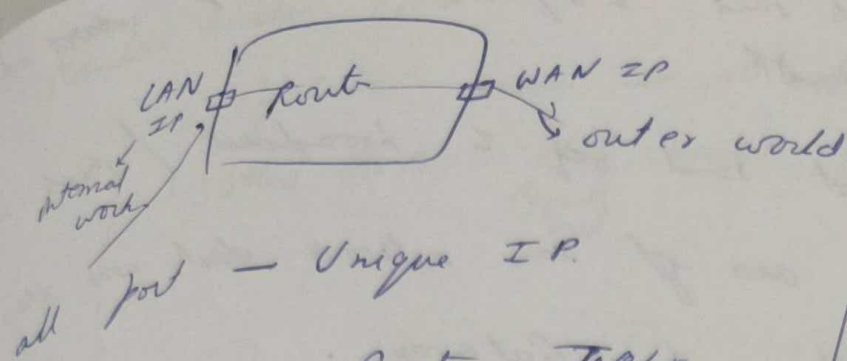 LAN IP
Router
WAN IP
outer world
internal work
all port - Unique IP.